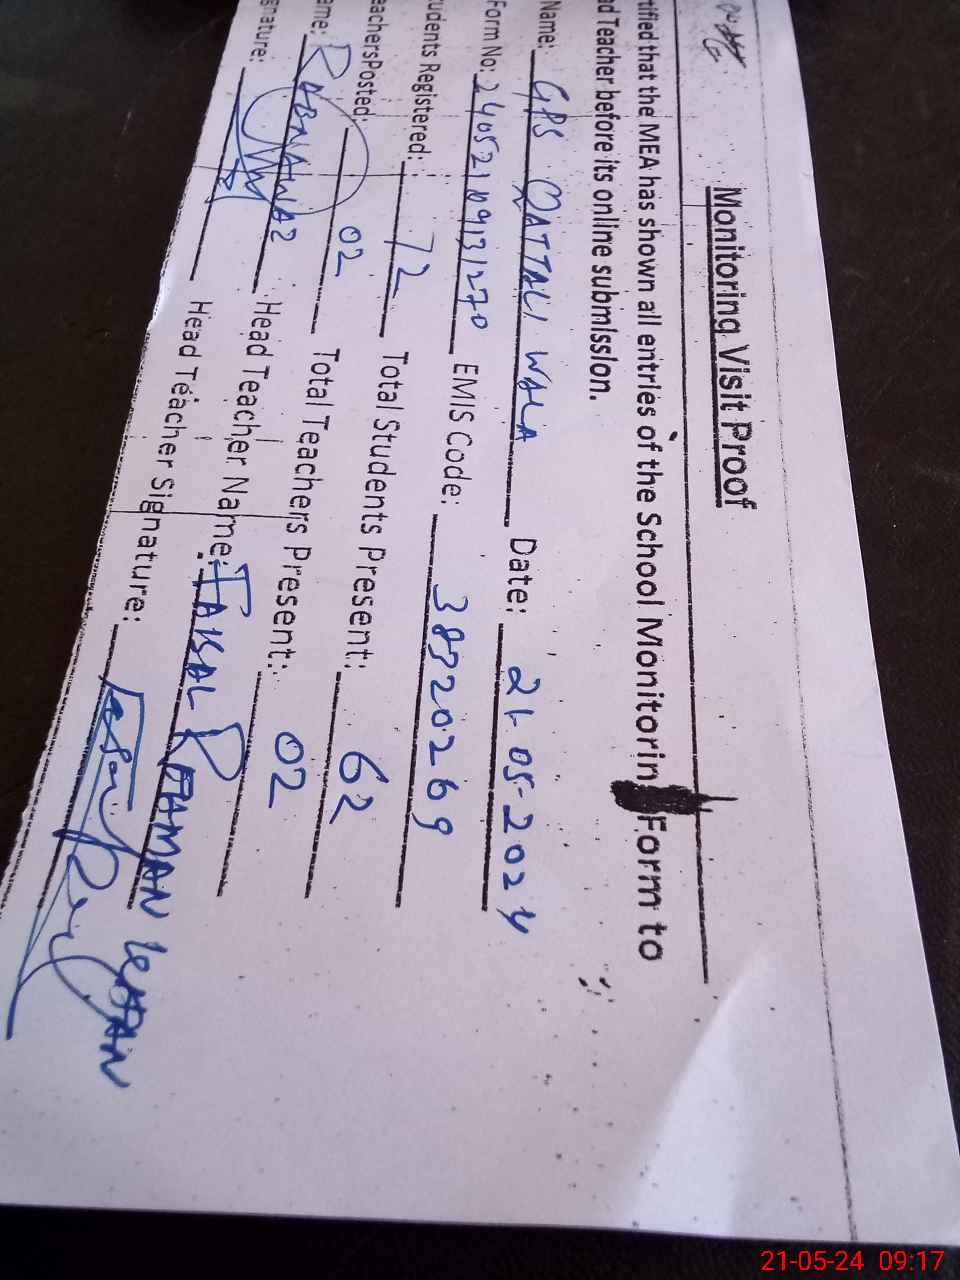 Monitoring Visit Proof
tified that the MEA has shown all entries of the School Monitorin Form to
ad Teacher before its online submission.
Name: GPS QATTALI WALA Date: 21-05-2024
Form No: EMIS Code: 38320269
udents Registered: 72 Total Students Present: 62
eachersPosted: 02 Total Teachers Present: 02
ame: RABNAWAZ Head Teacher Name: FAISAL REHMAN KHAN
gnature: Head Teacher Signature:
21-05-24 09:17